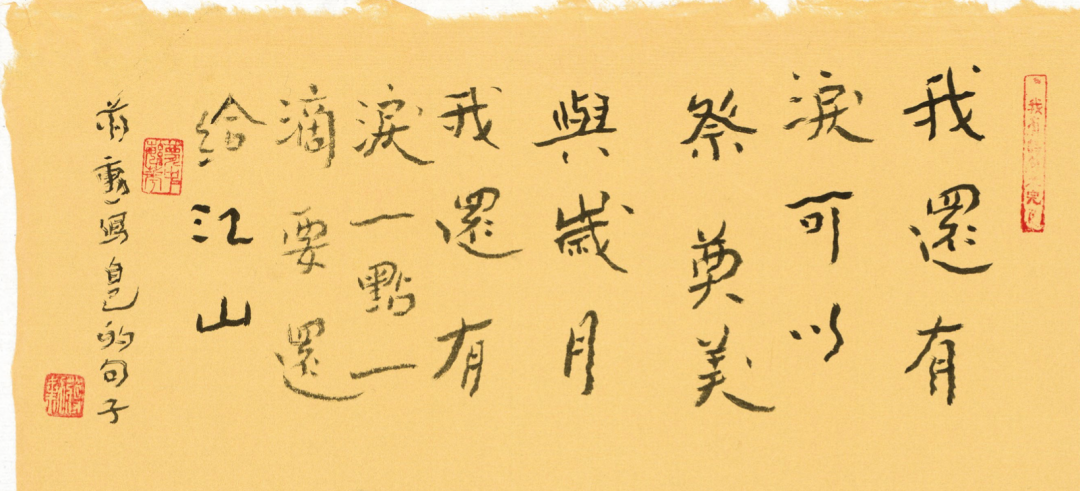 我還有
淚可以
祭奠美
與歲月
我還有
淚一點一
滴要還
給江山
蔣勳寫自己的句子